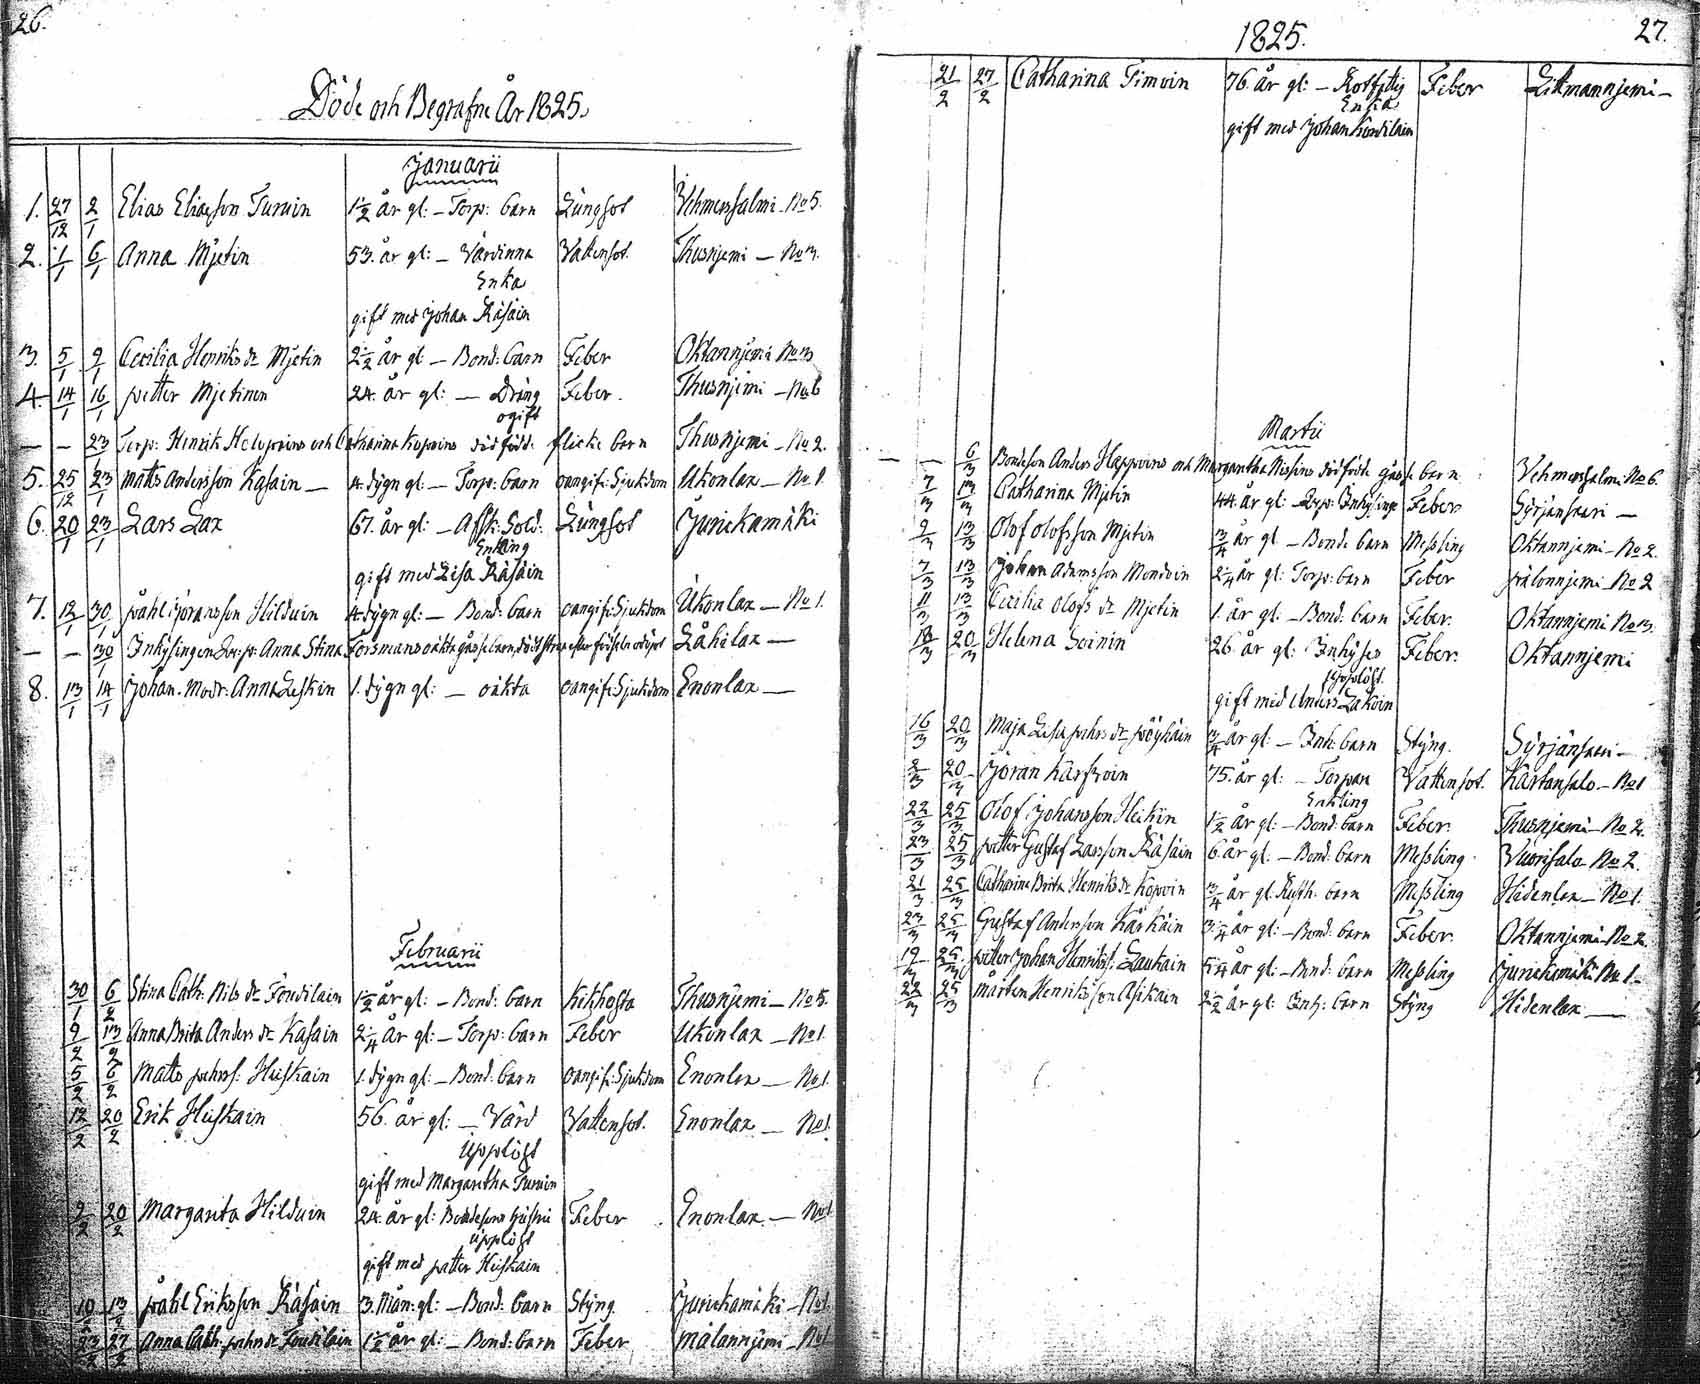 26.
Döde och Begrafne År 1825.
Januarii
1. 27/12 2/1 Elias Eliasson Turuin 1 1/2 år gl: – Torp: barn Lungsot Vehmersalmi – No 5.
2. 1/1 6/1 Anna Mjetin 53. år gl: – Värdinna Vattensot. Thusnjemi – No 3.
Enka
gift med Johan Räsäin
3. 5/1 9/1 Cecilia Henriks dr Mjetin 2 1/2 år gl – Bond: barn Feber Oktannjemi No 3
4. 14/1 16/1 petter Mjetinen 24. år gl: – Dräng Feber. Thusnjemi – No 6
ogift
– – 23/1 Torp: Henrik och Catharina Kopoins dödfödt flicke barn Thusnjemi – No 2.
5. 25/12 23/1 Matts Andersson Kasain – 4. dygn gl: – Torp: barn oangif: Sjukdom Ukonlax – No 1.
6. 20/1 23/1 Lars Lax 67. år gl: – Afsk: Sold: Lungsot Jurickamäki
Enkling
gift med Lisa Räsäin
7. 12/1 30/1 påhl Göransson Hilduin 4. dygn gl: – Bond: barn oangif: Sjukdom Ukonlax – No 1.
– – 30/1 Inhysingen Anna Stina Forsmans oäkta gåsse barn, dödt strax efter födseln Låhilax –
8. 13/1 14/1 Johan. Modr: Anna Leskin 1. dygn gl: – oäkta oangif: Sjukdom Enonlax –
Februarii
30/1 6/2 Stina Cath: Nils dr Foudilain 1 1/2 år gl: – Bond: barn Kikhosta Thusnjemi – No 5.
9/2 13/2 Anna Brita Anders dr Kasain 2 1/4 år gl: – Torp: barn Feber Ukonlax – No 1.
5/2 6/2 Matts pehrs: Huskain 1. dygn gl: – Bond: barn oangif: Sjukdom Enonlax – No 1.
12/2 20/2 Erik Huskain 56. år gl: – Värd Vattensot. Enonlax – No 1.
Upplöst
gift med Margaretha Turuin
9/2 20/2 Margareta Hilduin 24. år gl: Bondesons hustru Feber Enonlax – No 1
upplöst
gift med petter Huskain
10/2 13/2 påhl Eriksson Räsäin 3. Mån: gl: – Bond: barn Styng Jurickamäki – No 1
23/2 27/2 Anna Cath: pehrs dr Foudilain 1 1/2 år gl: – Bond: barn Feber Målannjemi – No 1
1825.
27.
21/2 27/2 Catharina Timoin 76. år gl: – Rotfattig Feber Litmannjemi –
Enka
gift med Johan Kondilain
Martii
– – 6/3 Bondeson Anders Happoins och Margaretha dödfödt gåsse barn Vehmersalmi No 6.
7/3 13/3 Catharina Mjetin 44. år gl: – Inhysing Feber Syrjänsaari –
9/3 13/3 Olof Olofsson Mjetin 3/4 år gl – Bonde barn Messling Oktannjemi – No 2.
7/3 13/3 Johan Adamsson Mondoin 2 1/4 år gl: Torp: barn Feber pälonnjemi – No 2
11/3 13/3 Cecilia Olofs dr Mjetin 1. år gl: – Bond: barn Feber. Oktannjemi No 3.
18/3 20/3 Helena Soinin 26. år gl: Inhyses Feber. Oktannjemi
Upplöst.
gift med Anders Lakoin
16/3 20/3 Maja Lisa pehrs dr pöyhäin 3/4 år gl: – Inh: barn Styng. Syrjänsaari –
2/3 20/3 Göran Kärhoin 75. år gl: – Torpare Vattensot. Kärtansalo – No 1
Enkling
22/3 25/3 Olof Johansson Heikin 1 1/2 år gl: – Bond: barn Feber. Thusnjemi – No 2.
23/3 25/3 petter Gustaf Larsson Räsäin 6. år gl: – Bond: barn Messling. Vuorisalo – No 2.
21/3 25/3 Catharina Brita Henriks dr Kopoin 3/4 år gl. Rusth: barn Messling Hidenlax – No 1.
23/3 25/3 Gustaf Andersson Kärkäin 3 1/4 år gl: – Bond: barn Feber. Oktannjemi – No 2.
19/3 25/3 petter Johan Henriks: Laukain 5 1/4 år gl: – Bond: barn Messling Jurickamäki No 1.
22/3 25/3 Mårten Henriksson Asikain 2 1/2 år gl: Inh: barn Styng Hidenlax –